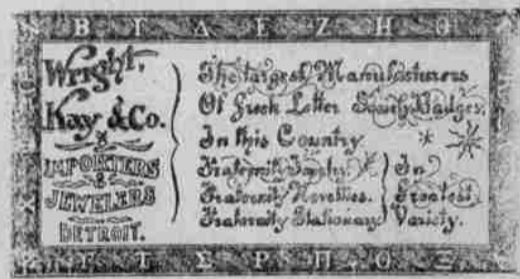 B Γ Δ E Z H Θ
Wright,
Kay & Co.
IMPORTERS
&
JEWELERS
DETROIT.
The Largest Manufacturers
Of Greek Letter Society Badges,
In this Country.
Fraternity Jewelry.
Fraternity Novelties.
Fraternity Stationary
In
Greatest
Variety.
Υ Τ Σ Ρ Π Ο Ξ